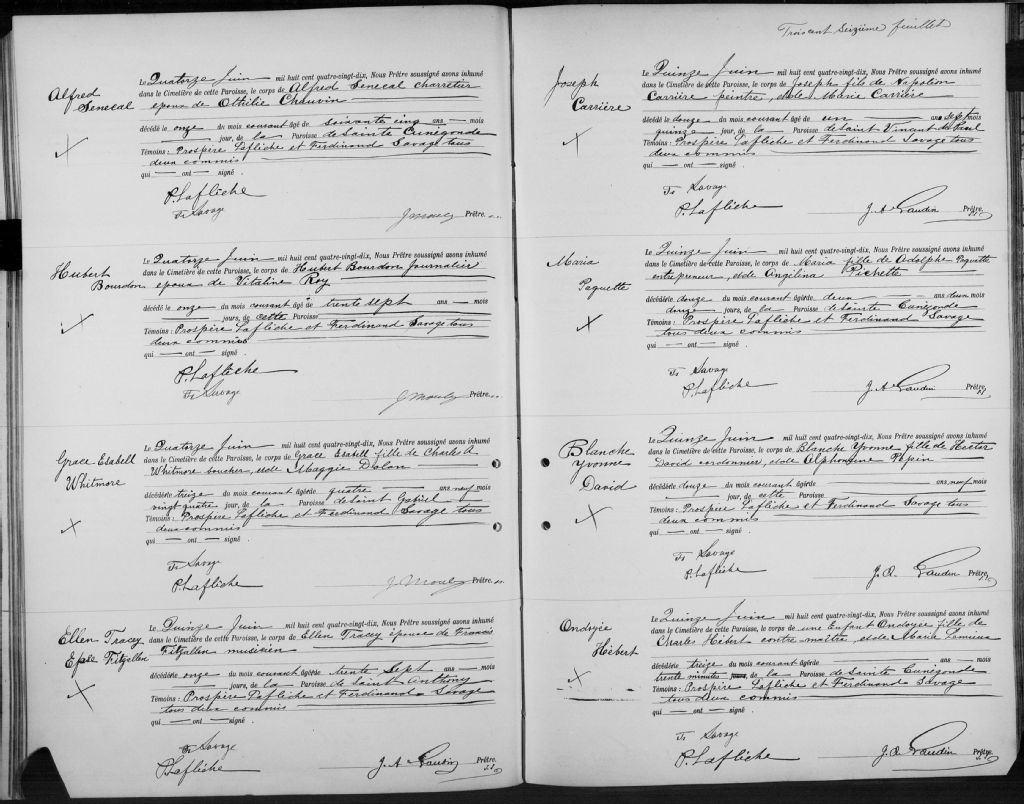 Alfred
Senecal
Le Quatorze Juin mil huit cent quatre-vingt-dix, Nous Prêtre soussigné avons inhumé
dans le Cimetière de cette Paroisse, le corps de Alfred Senecal charretier
epoux de Othilie Chauvin
décédé le onze du mois courant âgé de soixante cinq ans — mois
jour, de la Paroisse de Sainte Cunégonde
Témoins : Prospère Laflèche et Ferdinand Savage tous
deux commis
qui — ont — signé .
P. Laflèche
Fd Savage
Prêtre
Hubert
Bourdon
Le Quatorze Juin mil huit cent quatre-vingt-dix, Nous Prêtre soussigné avons inhumé
dans le Cimetière de cette Paroisse, le corps de Hubert Bourdon journalier
epoux de Vitaline Roy
décédé le onze du mois courant âgé de trente sept ans — mois
jours, de cette Paroisse
Témoins : Prospère Laflèche et Ferdinand Savage tous
deux commis
qui — ont — signé .
P. Laflèche
Fd Savage
Prêtre
Grace Esabell
Whitmore
Le Quatorze Juin mil huit cent quatre-vingt-dix, Nous Prêtre soussigné avons inhumé
dans le Cimetière de cette Paroisse, le corps de Grace Esabell fille de Charles A
Whitmore boucher, et de Maggie Dolan
décédée le treize du mois courant âgée de quatre ans neuf mois
vingt quatre jour, de la Paroisse de Saint Gabriel
Témoins : Prospère Laflèche et Ferdinand Savage tous
deux commis
qui — ont — signé .
Fd Savage
P. Laflèche
Prêtre
Ellen Tracey
Epse Fitzallen
Le Quinze Juin mil huit cent quatre-vingt-dix, Nous Prêtre soussigné avons inhumé
dans le Cimetière de cette Paroisse, le corps de Ellen Tracey épouse de Francis
Fitzallen musicien
décédée le onze du mois courant âgée de trente sept ans — mois
jours, de la Paroisse de Saint Anthony
Témoins : Prospère Laflèche et Ferdinand Savage
tous deux commis
qui — ont — signé .
Fd Savage
P. Laflèche
J. A. Gaudin Prêtre
Trois cent Seizième feuillet
Joseph
Carrière
Le Quinze Juin mil huit cent quatre-vingt-dix, Nous Prêtre soussigné avons inhumé
dans le Cimetière de cette Paroisse, le corps de Joseph fils de Napoléon
Carrière peintre, et de Marie Carrière
décédé le douze du mois courant âgé de un ans sept mois
quinze jour, de la Paroisse de Saint Vincent de Paul
Témoins : Prospère Laflèche et Ferdinand Savage tous
deux commis
qui — ont — signé .
Fd Savage
P. Laflèche
J. A. Gaudin Prêtre
Maria
Paquette
Le Quinze Juin mil huit cent quatre-vingt-dix, Nous Prêtre soussigné avons inhumé
dans le Cimetière de cette Paroisse, le corps de Maria fille de Adolphe Paquette
entrepreneur, et de Angelina Pichette
décédée le douze du mois courant âgée de deux ans deux mois
douze jours, de la Paroisse de Sainte Cunégonde
Témoins : Prospère Laflèche et Ferdinand Savage
tous deux commis
qui — ont — signé .
Fd Savage
P. Laflèche
J. A. Gaudin Prêtre
Blanche
Yvonne
David
Le Quinze Juin mil huit cent quatre-vingt-dix, Nous Prêtre soussigné avons inhumé
dans le Cimetière de cette Paroisse, le corps de Blanche Yvonne fille de Hector
David cordonnier, et de Alphonsine Pépin
décédée le douze du mois courant âgée de ans, neuf mois
jour, de cette Paroisse
Témoins : Prospère Laflèche et Ferdinand Savage tous
deux commis
qui — ont — signé .
Fd Savage
P. Laflèche
J. A. Gaudin Prêtre
Ondoyée
Hébert
Le Quinze Juin mil huit cent quatre-vingt-dix, Nous Prêtre soussigné avons inhumé
dans le Cimetière de cette Paroisse, le corps de une Enfant Ondoyée fille de
Charles Hébert contre maître, et de Marie Lemieux
décédée le treize du mois courant âgée de
trente minutes jours, de la Paroisse de Sainte Cunégonde
Témoins : Prospère Laflèche et Ferdinand Savage
tous deux commis
qui — ont — signé .
Fd Savage
P. Laflèche
J. A. Gaudin Prêtre